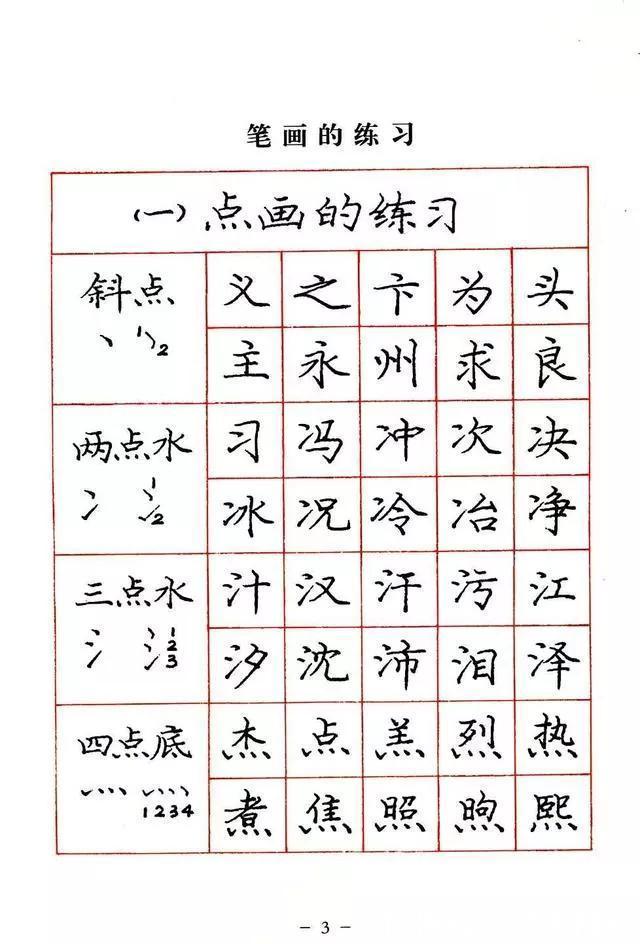 笔画的练习
(一)点画的练习
斜点 义 之 卞 为 头
丶 1 2 主 永 州 求 良
两点水 习 冯 冲 次 决
冫 1 2 冰 况 冷 冶 净
三点水 汁 汉 汗 污 江
氵 1 2 3 汐 沈 沛 泪 泽
四点底 杰 点 羔 烈 热
灬 1234 煮 焦 照 煦 熙
- 3 -